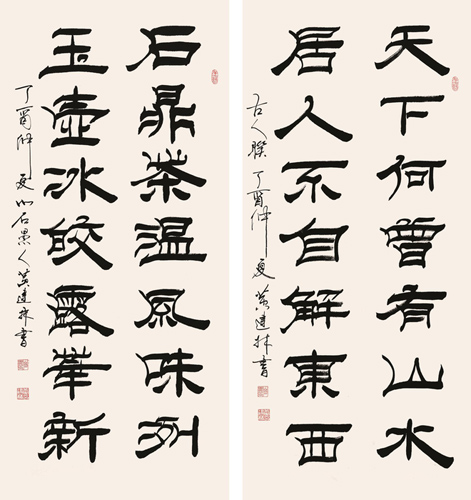 天下何曾有山水
居人不自解東西
古人聯 丁酉仲夏 黄建林書
石鼎茶溫風味列
玉壺冰皎露華新
丁酉仲夏 石愚人黄建林書